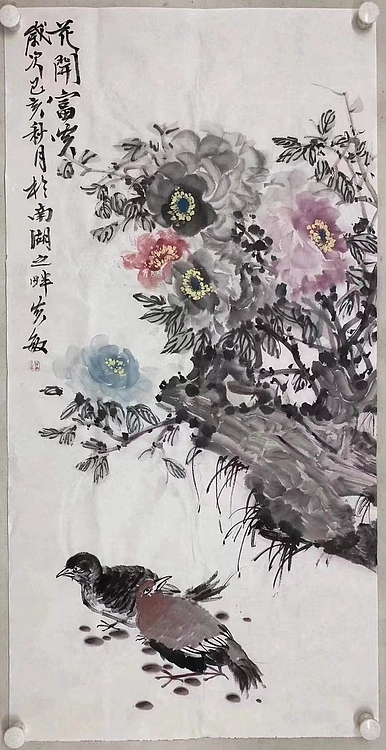 花開富贵
歲次己亥秋月於南湖之畔